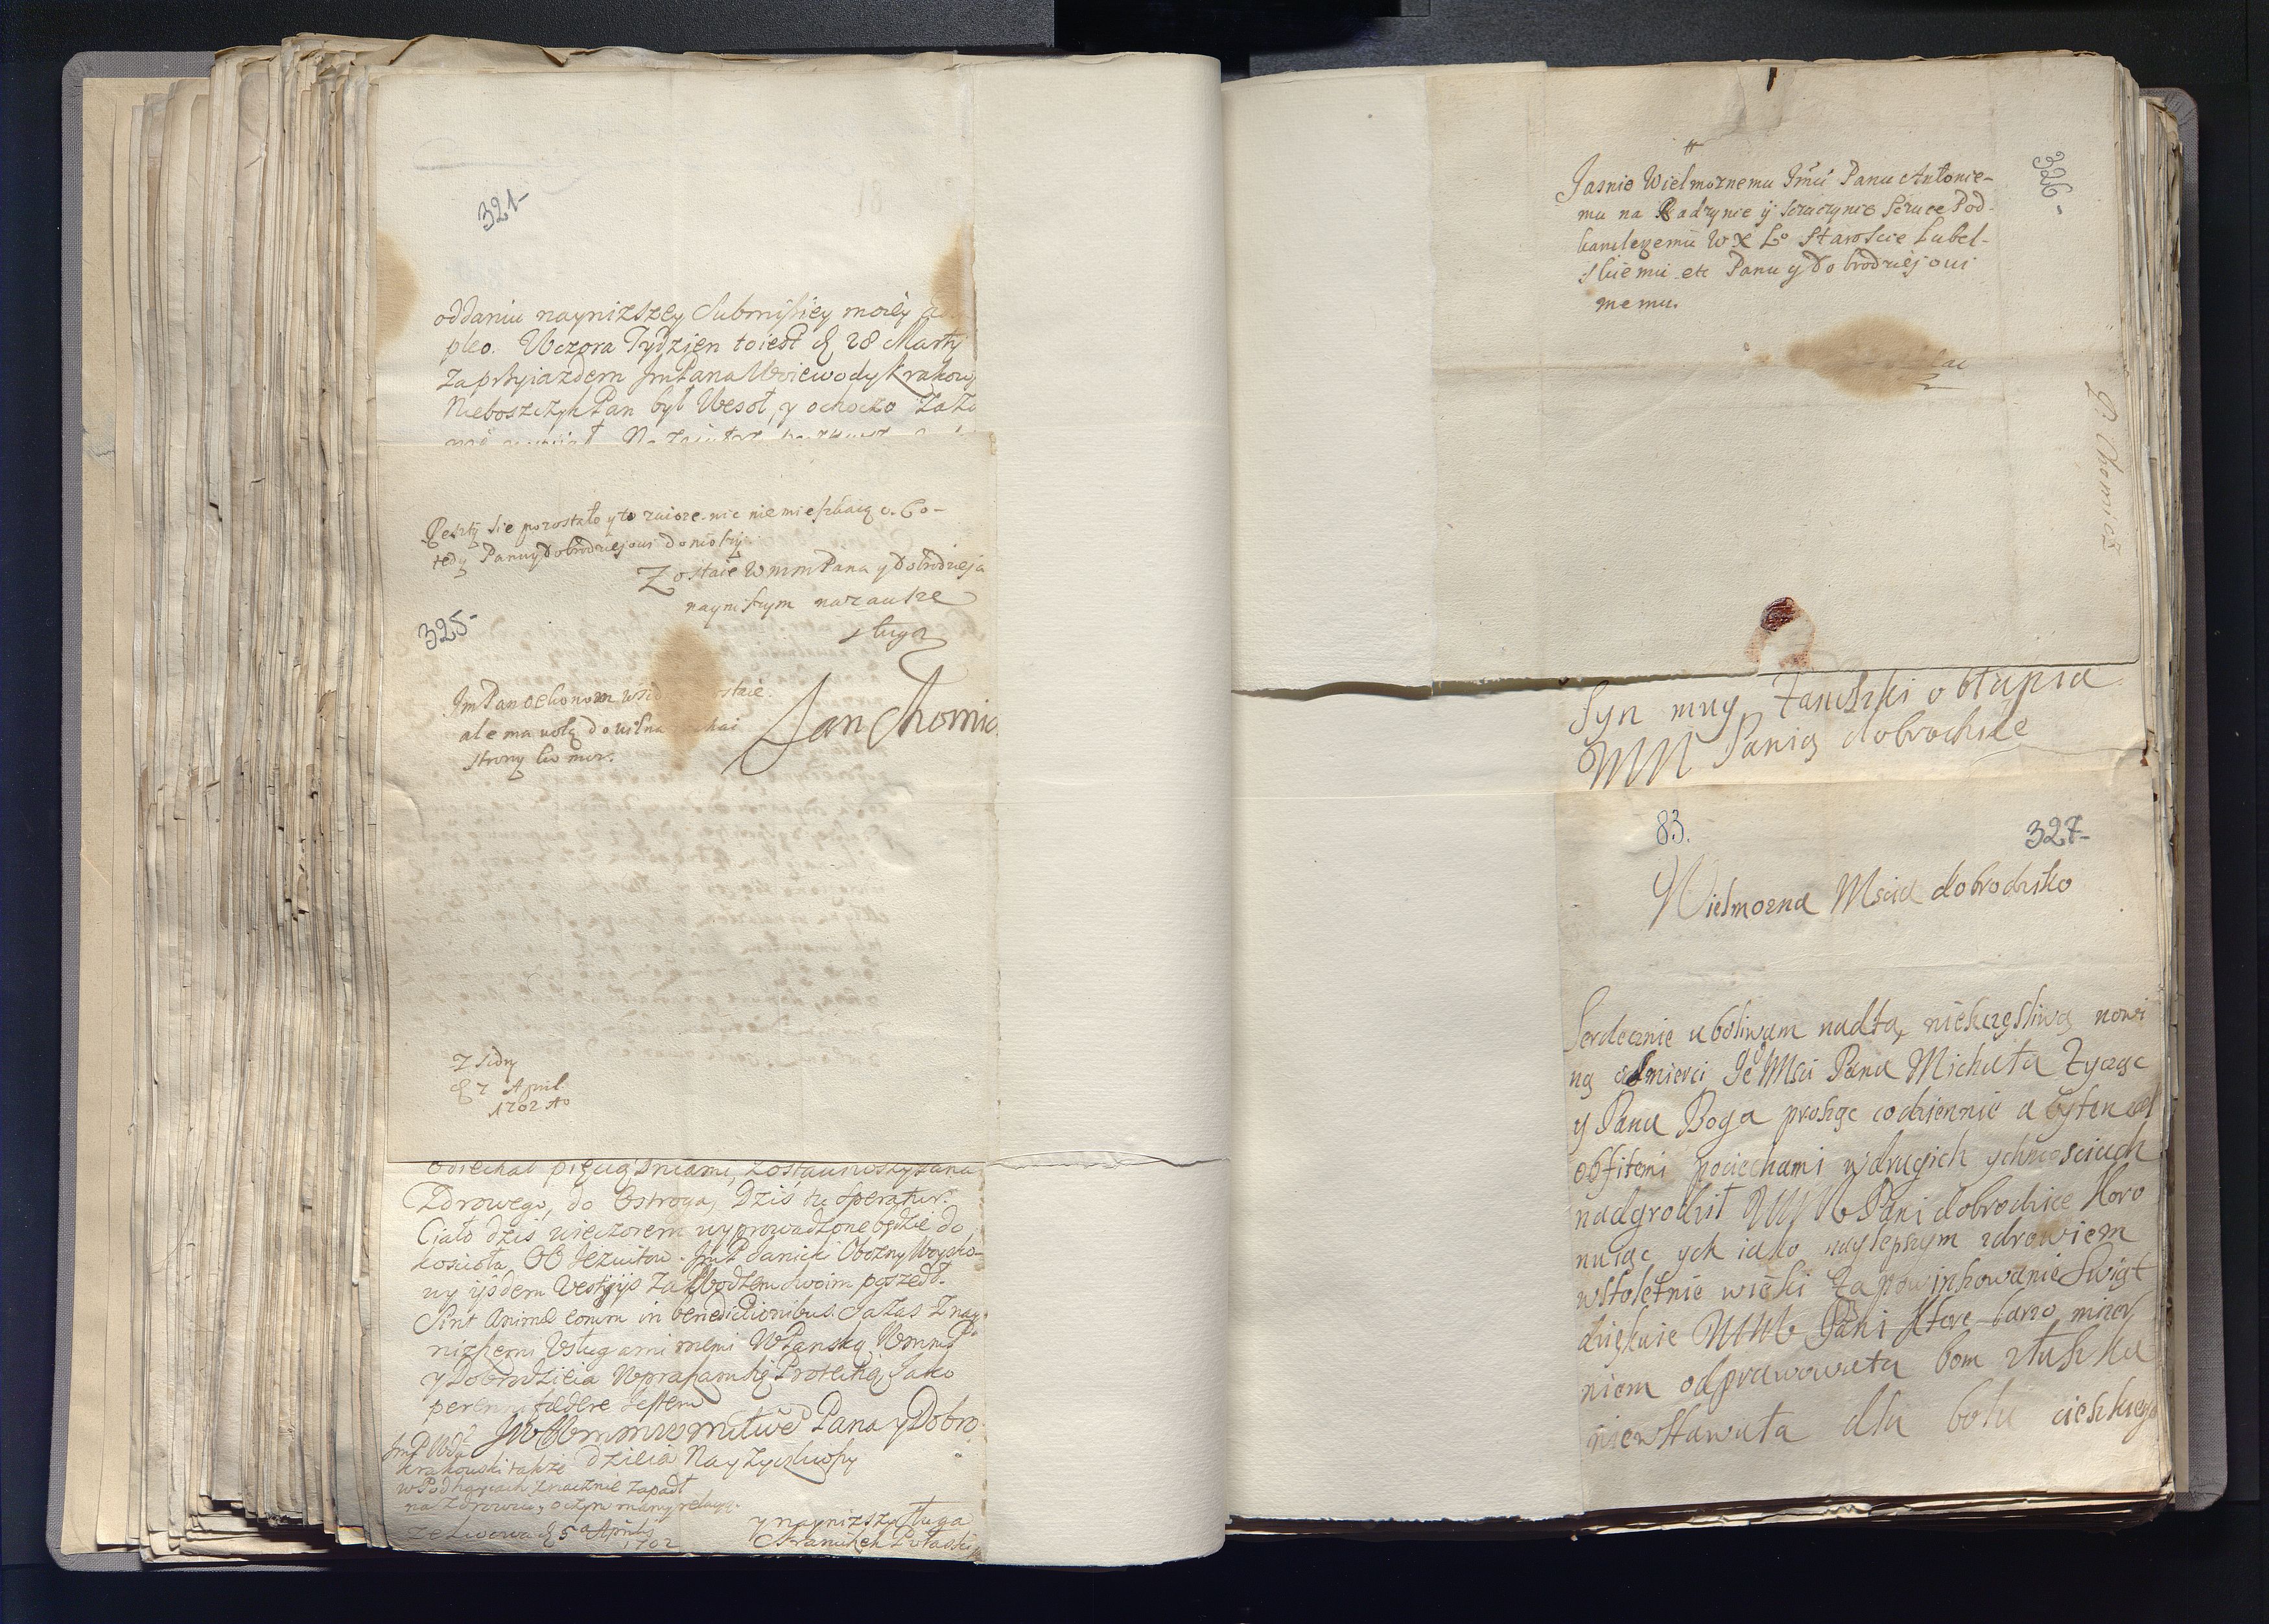 321-
oddaniu naynizszey Submissiey moiey
pleo. Wczora Tydzien toiest d. 28 Martij
Zaprzyiazdem JmPana Woiewody Krakow
Nieboszczyk Pan był Wesoł, y ochoczo
Reszty sie pozostało y to zwioze. nic nie mieszkaiąc. Co-
tedy Panu y Dobrodziejowi doniosszy.
Zostaie WmmPana y Dobrodzieja
nayniszym nazawsze
sługą
325-
JmPan oekonom
ale ma wolą do wilna
strony
Jan Chomic
Z Sidry
d. 7 April
1702 Ao
odiechał pięcią dniami, zostawiwszy Pana
Zdrowego, do Ostroga, Dziś tu speratur.
Ciało dziś wieczorem wyprowadzone będzie do
kościoła OO Jezuitow. JmP Oboźny Woysko-
wy ijsdem Vestigijs za Wodzem swoim poszedł.
Sint Animae eorum in benedictionibus. Ja zas z nay-
niższemi Usługami memi WPanską Wmm Pa
y Dobrodzieia Upraszam się Protekcią, Jako
perenni foedere Jestem
JW Wmm mmmiłwe Pana y Dobro-
dzieia Nayzyczliwszy
JmP Wda
Krakowski takze
w Podhaycach znacznie zapadł
na zdrowiu, o czym mamy relacye.
ze Lwowa d. 5a Aprilis
1702
y naynizszy Sługa
326-
Jasnie Wielmoznemu Jmci Panu Antonie-
mu na Kadzynie ij Szczuczynie Szczuce Pod-
kanclerzemu W X Lo Staroscie Lubel-
skiemu etc Panu y Dobrodziejowi
memu.
P. Chomicz
Syn muy Panuszki obłapia
MM Panią dobrodzike
83.
327-
Wielmozna Mscia dobrodziko
Serdecznie uboliwam nad tą nieszczęsliwą nowi
ną o smierci Je Msci Pana Michała Zycząc
y Pana Boga prosząc codziennie abyten
obfitemi pociechami w drugich ychmosciach
nadgrodził MM Pani dobrodzice Koro
nuiąc ych iako naylepszym zdrowiem
wstoletnie wieki Zapowinszowanie Swiąt
dziękuie MMM Pani Ktore barzo mizer
niem odprawowała bom złuszka
niewstawała dla bolu cieszkiego